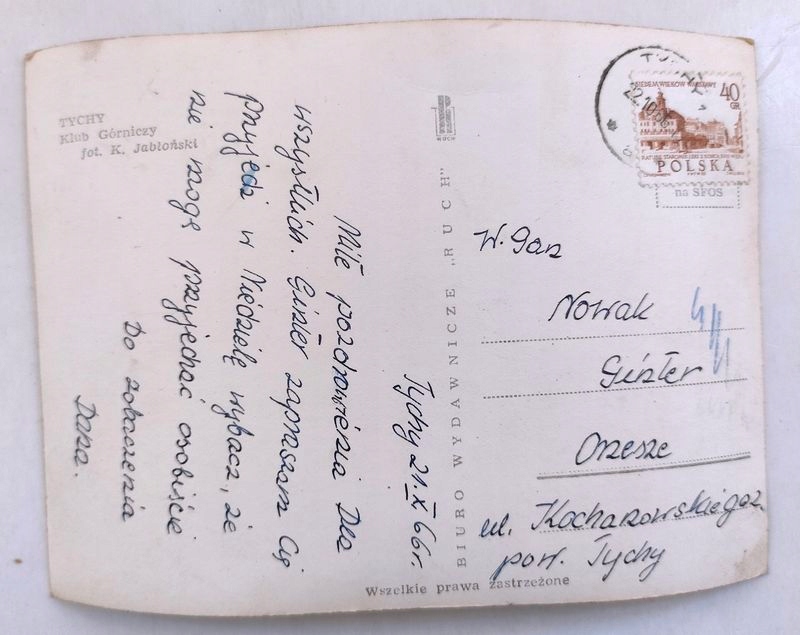 TYCHY
Klub Górniczy
fot. K. Jabłoński
Tychy 21.X 66r.
Miłe pozdrowienia Dla
wszystkich. Gizler zapraszam Cię
przyjedz w Niedzielę wybacz, że
nie mogę przyjechać osobiście
Do zobaczenia
Dana.
BIURO WYDAWNICZE „RUCH"
RUCH
SIEDEM WIEKÓW WARSZAWY
40
GR
POLSKA
na SFOS
TYCHY
22.10.66
W. Pan
Nowak
Gizler
Orzesze
ul. Kochanowskiego
pow. Tychy
Wszelkie prawa zastrzeżone